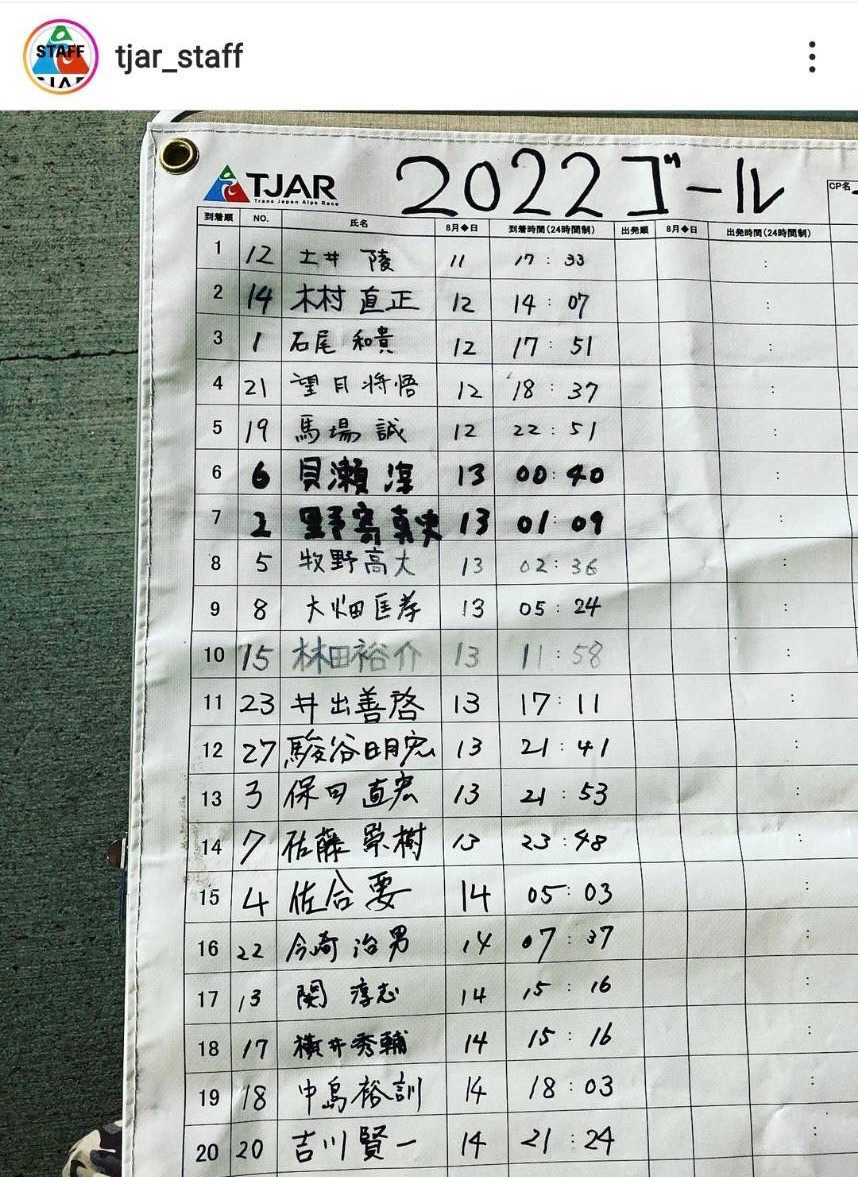 STAFF
tjar_staff
TJAR
Trans Japan Alps Race
2022ゴール
CP名
到着順 NO. 氏名 8月◆日 到着時間(24時間制) 出発順 8月◆日 出発時間(24時間制)
1 12 土井 陵 11 17:33 :
2 14 木村 直正 12 14:07 :
3 1 石尾 和貴 12 17:51 :
4 21 望月将悟 12 18:37 :
5 19 馬場 誠 12 22:51 :
6 6 貝瀬 淳 13 00:40 :
7 2 13 01:09 :
8 5 牧野高大 13 02:36 :
9 8 大畑匡孝 13 05:24 :
10 15 林田裕介 13 11:58 :
11 23 井出善啓 13 17:11 :
12 27 駿谷明宏 13 21:41 :
13 3 保田 直宏 13 21:53 :
14 7 佐藤 13 23:48 :
15 4 佐合 要 14 05:03 :
16 22 今崎 治男 14 07:37 :
17 13 関 淳志 14 15:16 :
18 17 横井秀輔 14 15:16 :
19 18 中島裕訓 14 18:03 :
20 20 吉川賢一 14 21:24 :